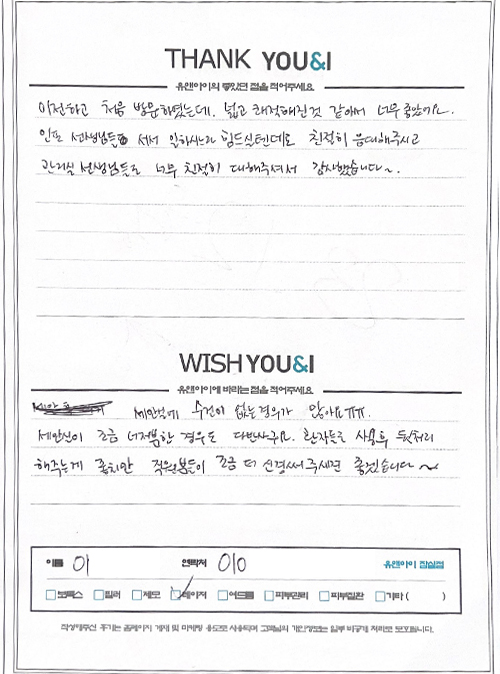 THANK YOU&I
유앤아이의 좋았던 점을 적어주세요
이전하고 처음 방문하였는데, 넓고 쾌적해진것 같아서 너무 좋았어요.
인포 선생님들 서서 일하시느라 힘드실텐데도 친절히 응대해주시고
관리실 선생님들도 너무 친절히 대해주셔서 감사했습니다~.
WISH YOU&I
유앤아이에 바라는 점을 적어주세요
세안실에 수건이 없는경우가 많아요ㅠㅠ.
세안실이 조금 너저분한 경우도 다반사구요. 환자들도 사용후 뒷처리
해주는게 좋지만 직원분들이 조금 더 신경써주세면 좋겠습니다~
이름 이 연락처 010 유앤아이 잠실점
보톡스 필러 제모 레이저 여드름 피부관리 피부질환 기타 ( )
작성해주신 후기는 홈페이지 게재 및 마케팅 용도로 사용되며 고객님의 개인정보는 일부 비공개 처리로 보호됩니다.